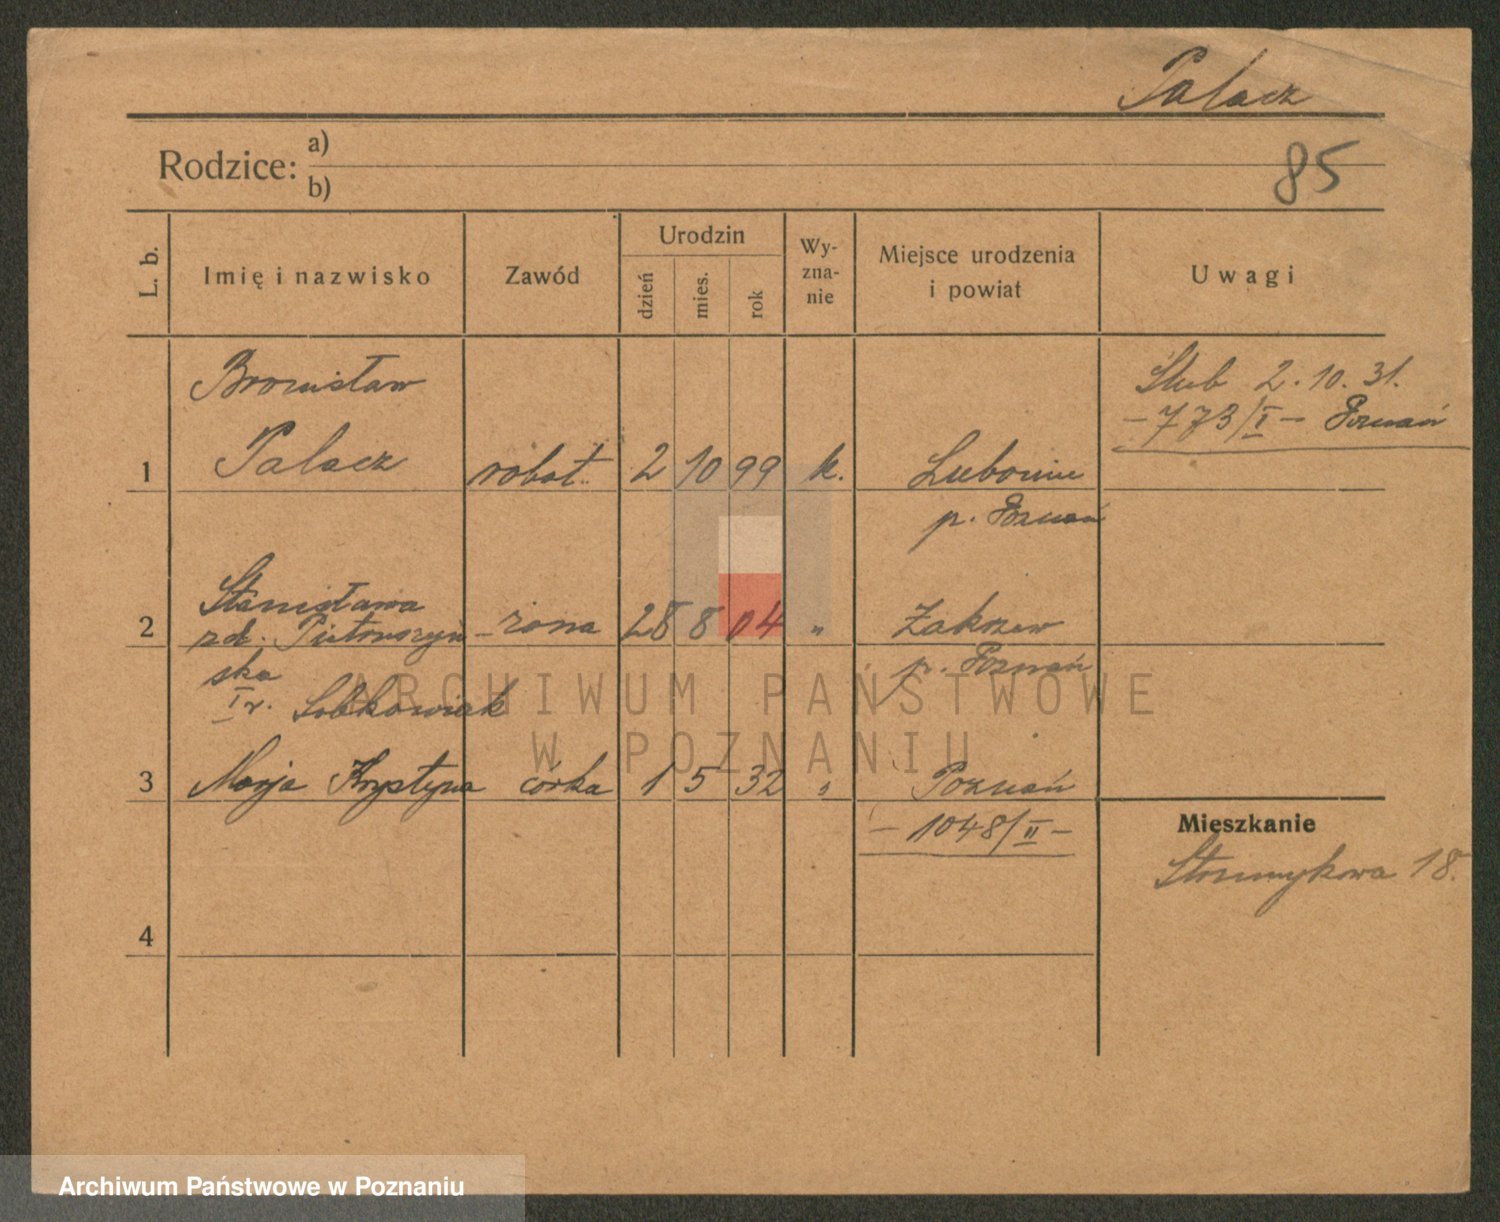 Palacz
85
Rodzice:
a)
b)
L. b.
Imię i nazwisko
Zawód
Urodzin
dzień
mies.
rok
Wy-
zna-
nie
Miejsce urodzenia
i powiat
Uwagi
Bronisław
Ślub 2. 10. 31.
– 773/I – Poznań
1 Palacz robot. 2 10 99 k.
p. Poznań
Stanisława
2 żona 28 8 04 „ Zakrzew
ska
p. Poznań
I v. Sobkowiak
ARCHIWUM PAŃSTWOWE
W POZNANIU
3 Marja Krystyna córka 1 5 32 „ Poznań
– 1048/II –
Mieszkanie
Strumykowa 18.
4
Archiwum Państwowe w Poznaniu